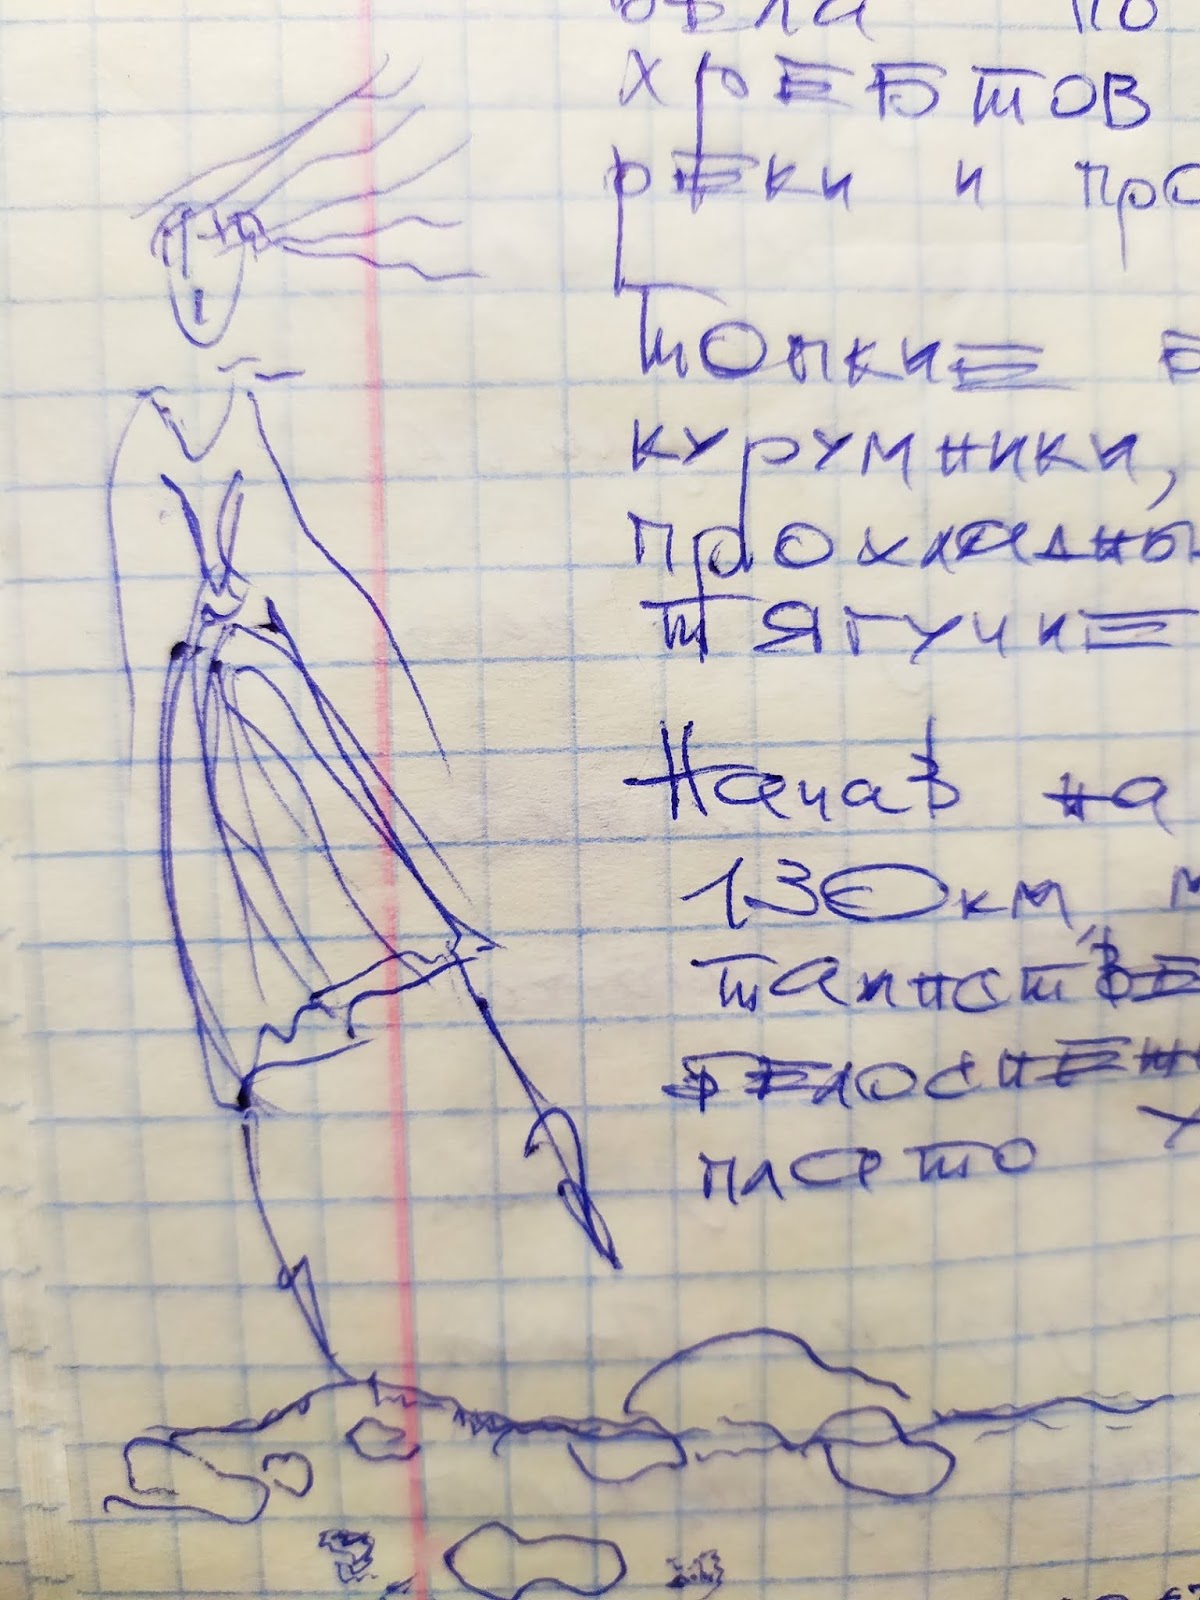 по
хребтов
реки и про
Топкие
курумники,
прохладны
тягучие
Начав на
130км, м
таинстве
белоснежн
плато у